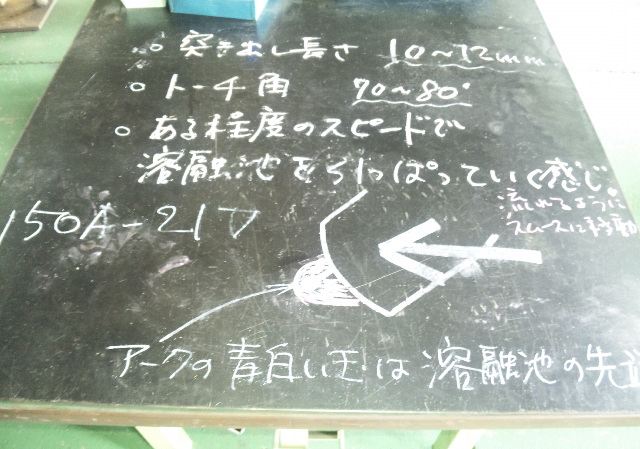 ○ 突き出し長さ 10~12mm
○ トーチ角 70~80°
○ ある程度のスピードで
溶融池をひっぱっていく感じ。
流れるように
スムースに移動
150A-21V
アークの青白い玉は溶融池の先